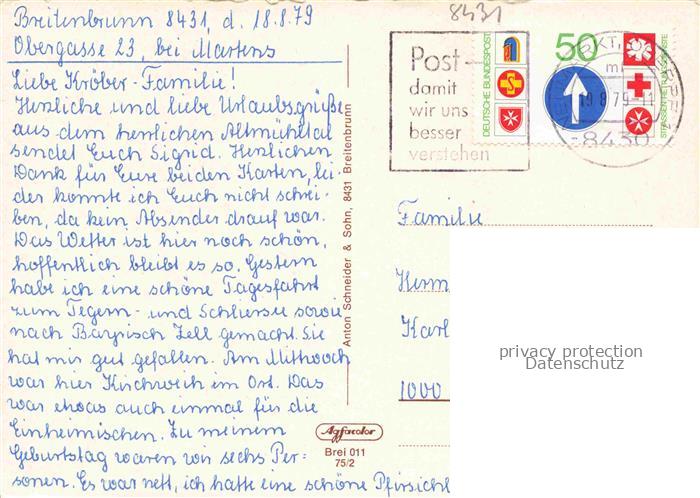 Breitenbrunn 8431, d. 18.8.79
Obergasse 23, bei Martens
Liebe Kröber-Familie!
Herzliche und liebe Urlaubsgrüße
aus dem herrlichen Altmühltal
sendet Euch Sigrid. Herzlichen
Dank für Eure beiden Karten, lei-
der konnte ich Euch nicht schrei-
ben, da kein Absender drauf war.
Das Wetter ist hier noch schön,
hoffentlich bleibt es so. Gestern
habe ich eine schöne Tagesfahrt
zum Tegern- und Schliersee sowie
nach Bayrisch Zell gemacht. Sie
hat mir gut gefallen. Am Mittwoch
war hier Kirchweih im Ort. Das
war etwas auch einmal für die
Einheimischen. Zu meinem
Geburtstag waren wir sechs Per-
sonen. Es war nett, ich hatte eine schöne Pfirsicht
Anton Schneider & Sohn, 8431 Breitenbrunn
Agfacolor
Brei 011
75/2
8431
Post-
damit
wir uns
besser
verstehen
DEUTSCHE BUNDESPOST
50
STRASSEN-HILFSDIENSTE
19.8.79-11
8430
Familie
Herm
Karl
1000
privacy protection
Datenschutz